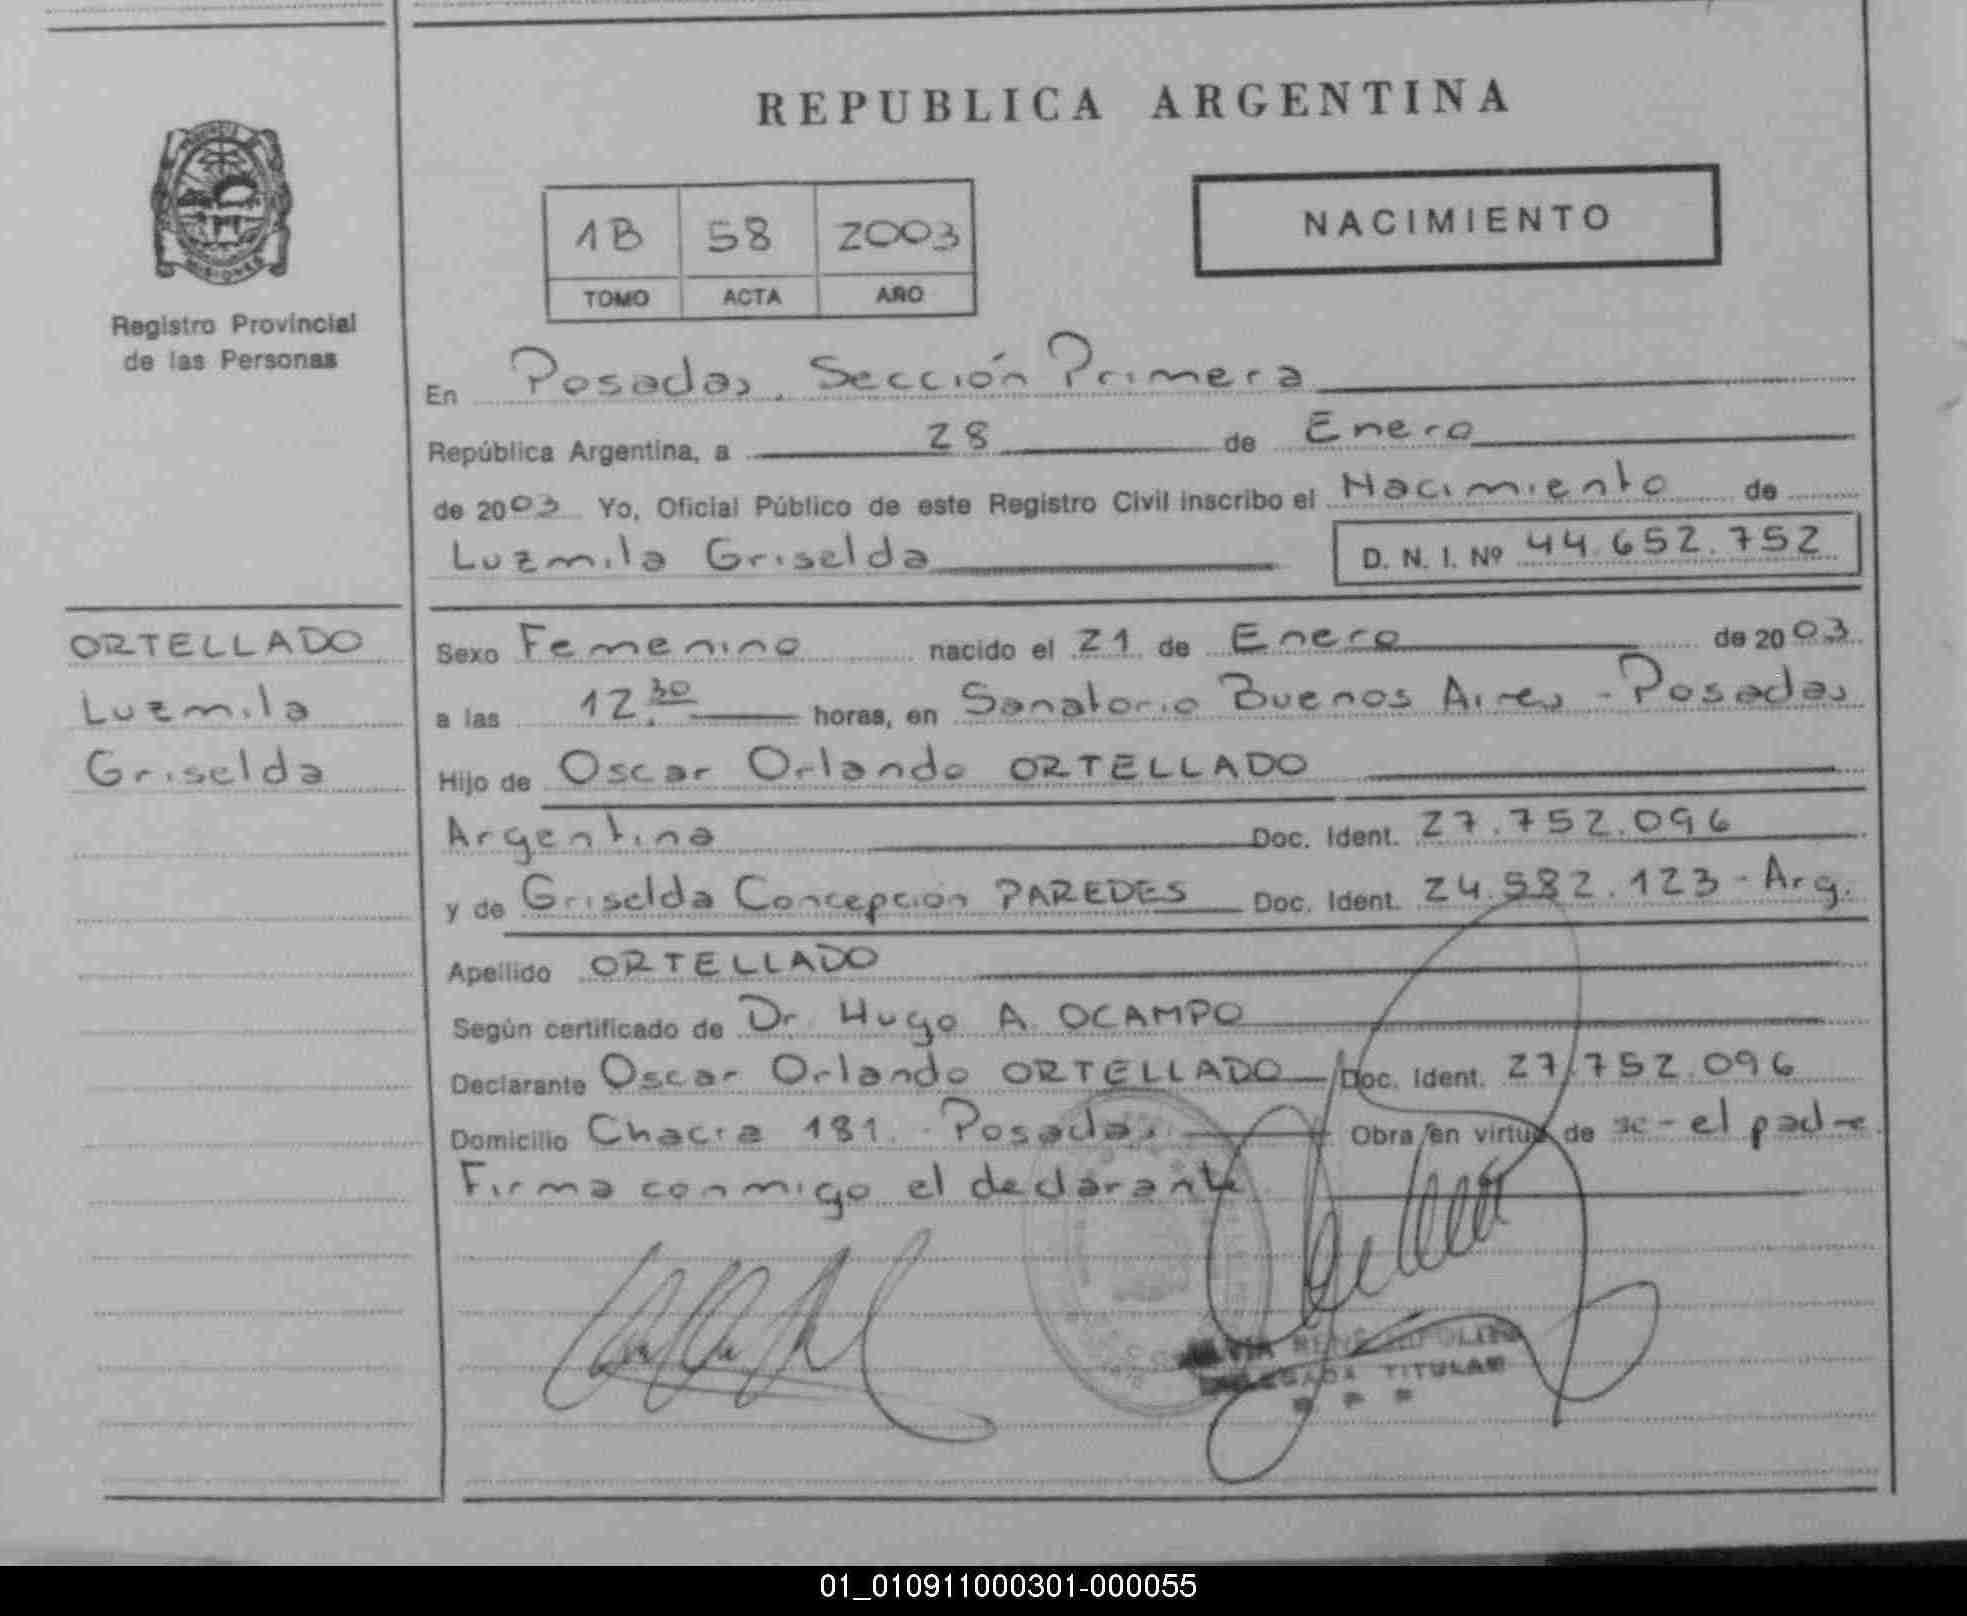 REPUBLICA ARGENTINA
MISIONES
Registro Provincial
de las Personas
1B 58 2003
TOMO ACTA AÑO
NACIMIENTO
En Posadas, Sección Primera
República Argentina, a 28 de Enero
de 2003 Yo, Oficial Público de este Registro Civil inscribo el Nacimiento de
Luzmila Griselda D. N. I. Nº 44.652.752
ORTELLADO
Luzmila
Griselda
Sexo Femenino nacido el 21 de Enero de 2003
a las 12.30 horas, en Sanatorio Buenos Aires - Posadas
Hijo de Oscar Orlando ORTELLADO
Argentina Doc. Ident. 27.752.096
y de Griselda Concepción PAREDES Doc. Ident. 24.582.123 - Arg.
Apellido ORTELLADO
Según certificado de Dr. Hugo A OCAMPO
Declarante Oscar Orlando ORTELLADO Doc. Ident. 27.752.096
Domicilio Chacra 181. - Posadas Obra en virtud de se - el padre
Firma conmigo el declarante
TITULAR
01_010911000301-000055